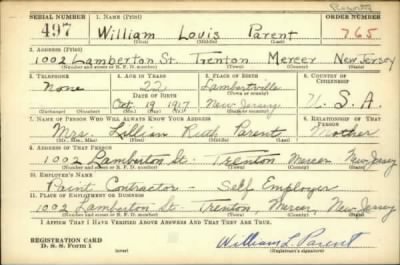 SERIAL NUMBER 1. NAME (Print) ORDER NUMBER
497 William Louis Parent 765
(First) (Middle) (Last)
2. ADDRESS (Print)
1002 Lamberton St. Trenton Mercer New Jersey
(Number and street or R. F. D. number) (Town) (County) (State)
3. TELEPHONE 4. AGE IN YEARS 5. PLACE OF BIRTH 6. COUNTRY OF CITIZENSHIP
None 22 Lambertville
DATE OF BIRTH (Town or county)
Oct 19 1917 New Jersey U. S. A.
(Exchange) (Number) (Mo.) (Day) (Yr.) (State or country)
7. NAME OF PERSON WHO WILL ALWAYS KNOW YOUR ADDRESS 8. RELATIONSHIP OF THAT PERSON
Mrs. Lillian Ruth Parent Mother
(Mr., Mrs., Miss) (First) (Middle) (Last)
9. ADDRESS OF THAT PERSON
1002 Lamberton St. Trenton Mercer New Jersey
(Number and street or R. F. D. number) (Town) (County) (State)
10. EMPLOYER'S NAME
Paint Contractor - Self Employer
11. PLACE OF EMPLOYMENT OR BUSINESS
1002 Lamberton St - Trenton, Mercer, New Jersey
(Number and street or R. F. D. number) (Town) (County) (State)
I AFFIRM THAT I HAVE VERIFIED ABOVE ANSWERS AND THAT THEY ARE TRUE.
REGISTRATION CARD William L Parent
D. S. S. Form 1 (over) (Registrant's signature)